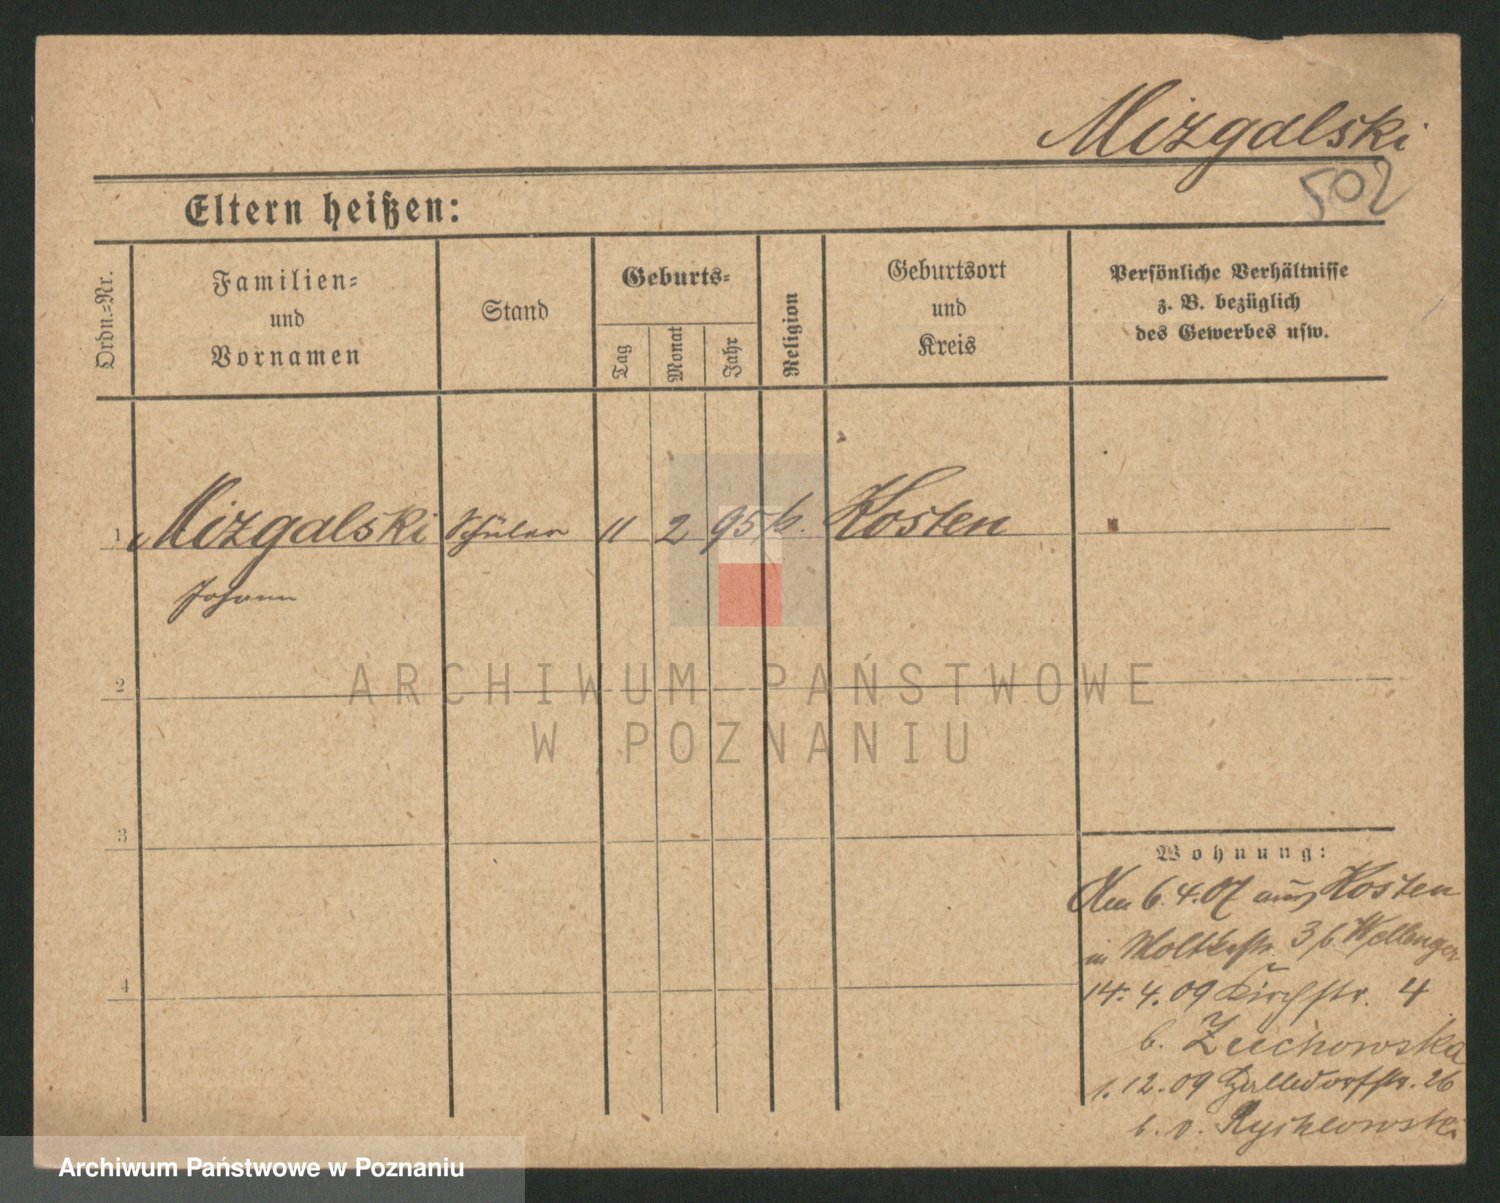 Mizgalski
502
Eltern heißen:
Ordn.-Nr.
Familien-
und
Vornamen
Stand
Geburts-
Tag
Monat
Jahr
Religion
Geburtsort
und
Kreis
Persönliche Verhältnisse
z. B. bezüglich
des Gewerbes usw.
1 Mizgalski Schüler 11 2 95 k. Kosten
Johann
2
3
4
Wohnung:
6.4.07 aus Kosten
in Moltkestr. 3 b.
14.4.09 Kirchstr. 4
b. Zuchowska
1.12.09 26
b. v. Rychlowski
ARCHIWUM PAŃSTWOWE
W POZNANIU
Archiwum Państwowe w Poznaniu